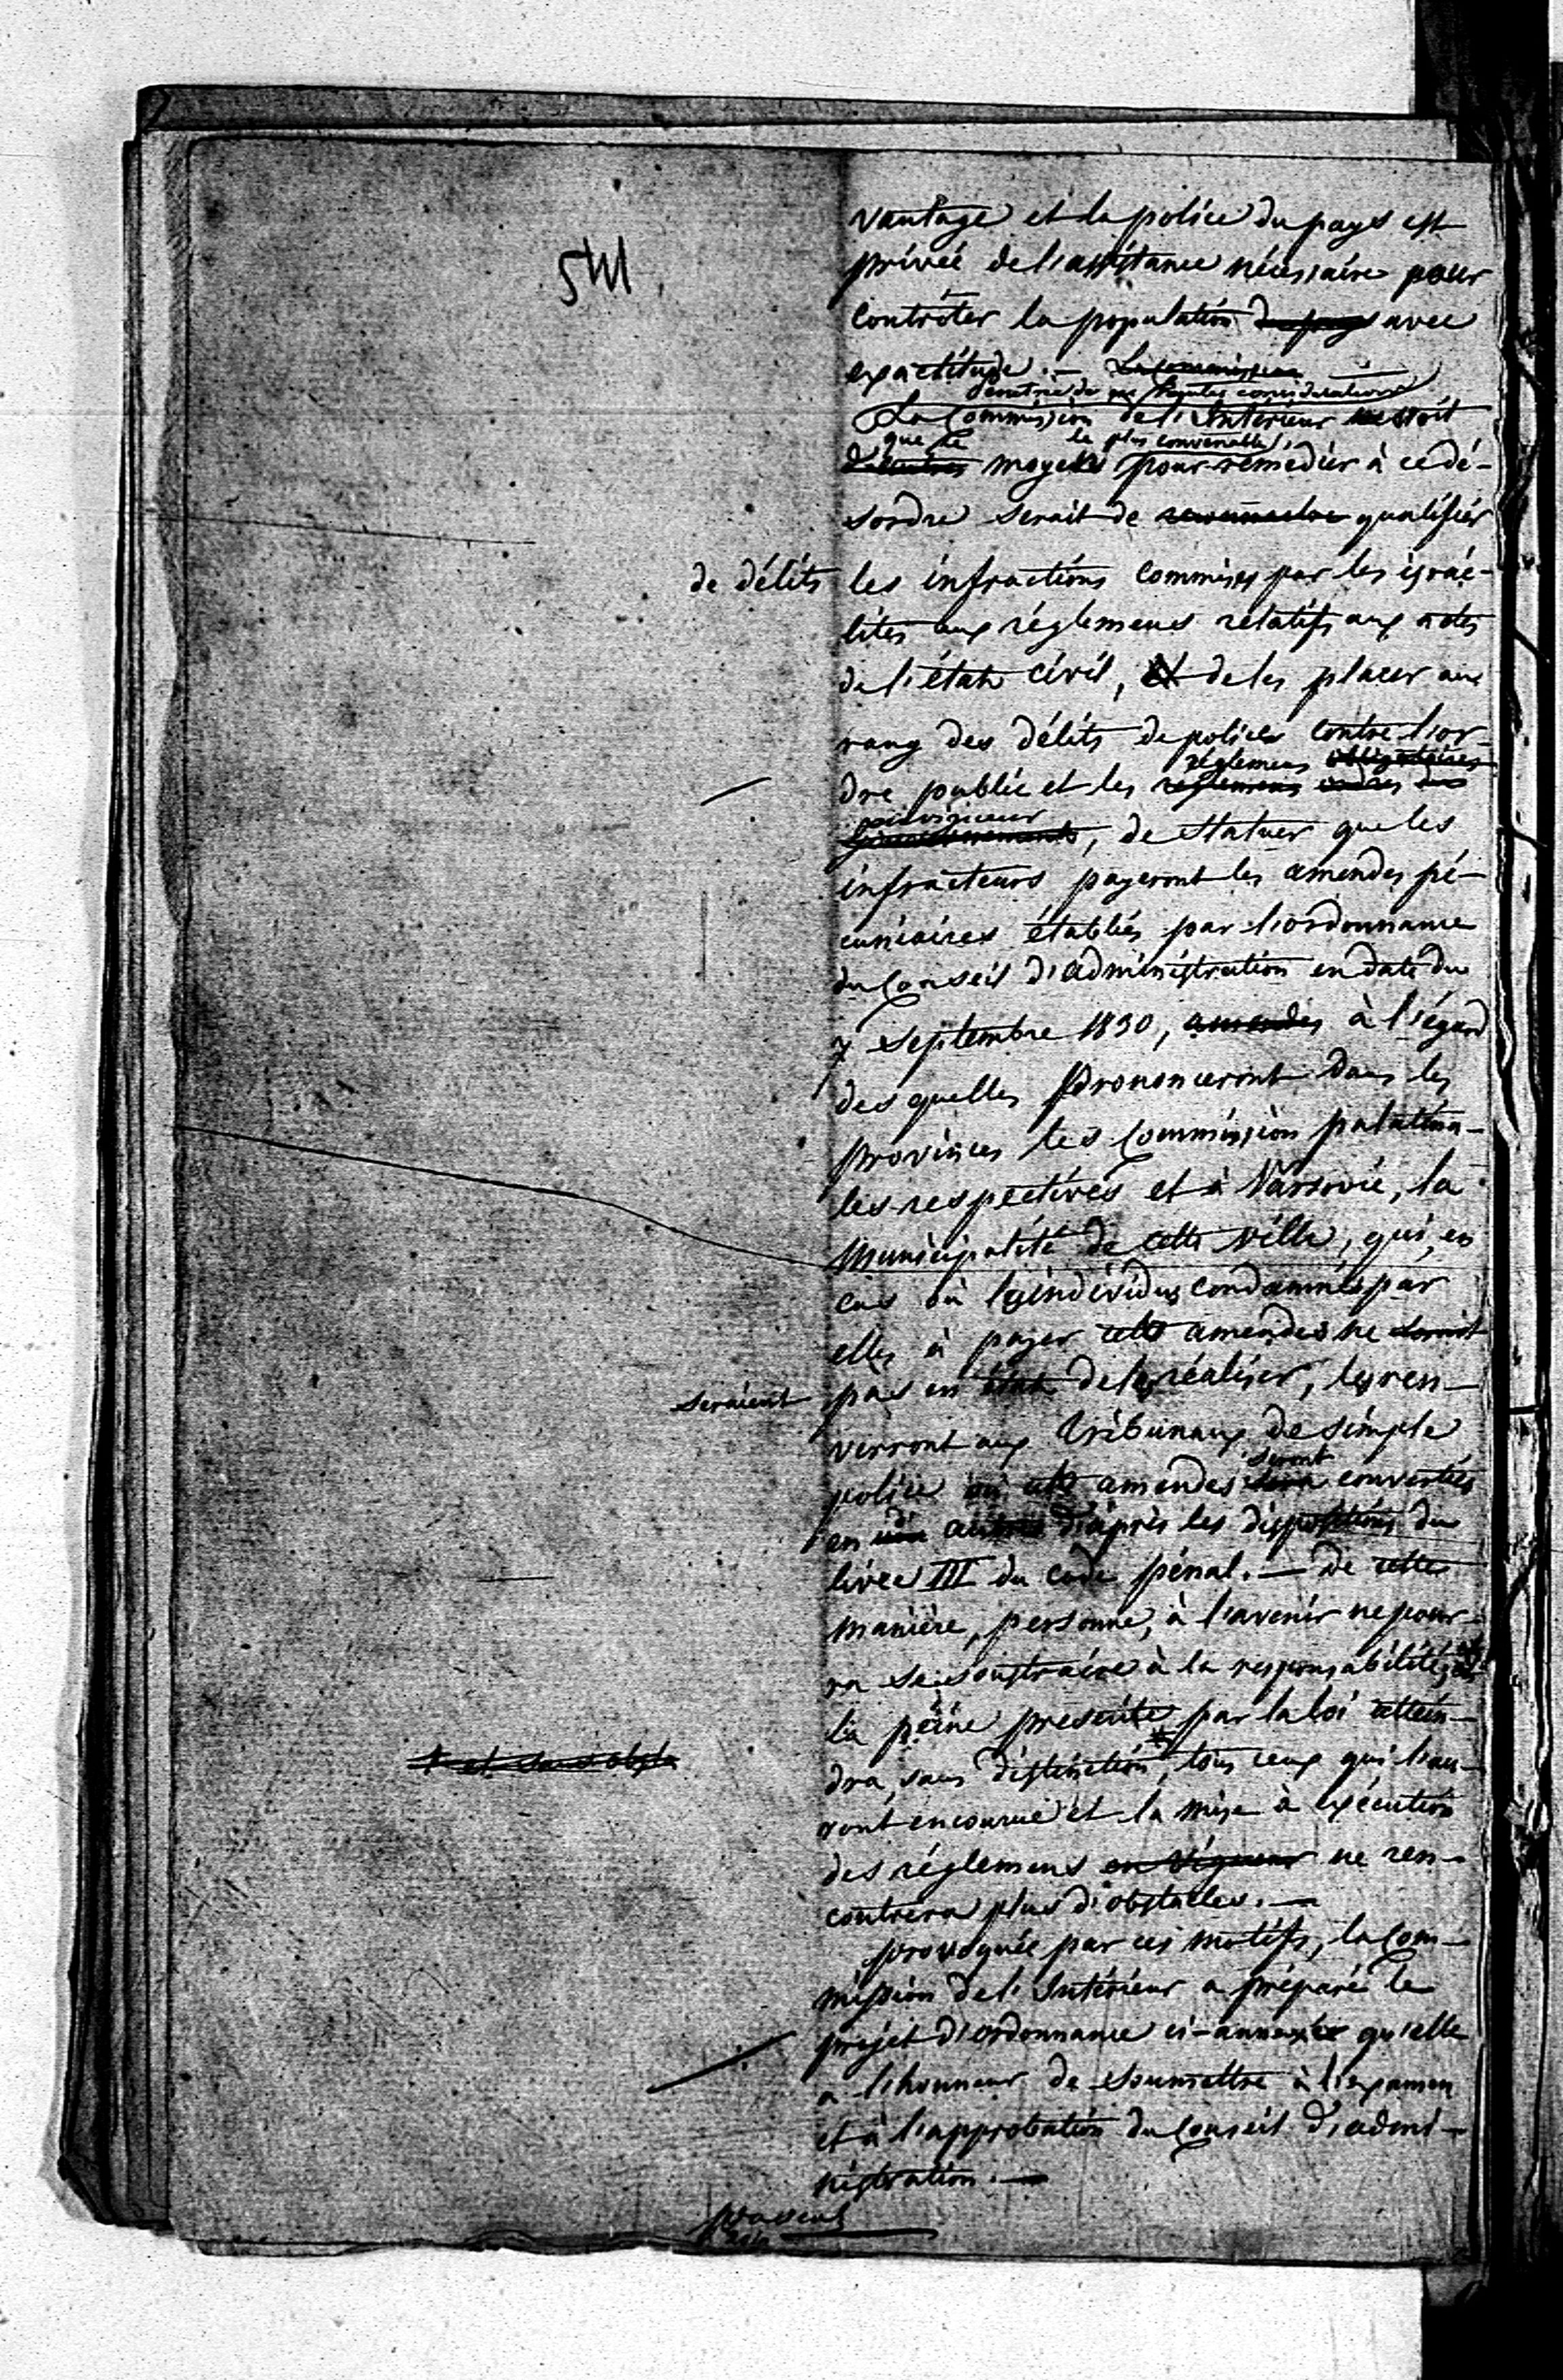 vantage et la police du pays est
privée de l'assistance nécessaire pour
contrôler la population du pays avec
exactitude. — La Commission
pénétrée de ces hautes considérations
La Commission de l'Intérieur croit
que le le plus convenable
moyen pour remédier à ce dé-
sordre serait de qualifier
de délits les infractions commises par les israé-
lites aux réglemens relatifs aux actes
de l'état civil, et de les placer au
rang des délits de police contre l'or-
réglemens obligatoires
dre public et les reglemens ordres
, de statuer que les
infracteurs payeront les amendes pé-
cuniaires établies par l'ordonnance
du Conseil d'administration en date du
7 Septembre 1830, amendes à l'égard
des quelles prononceront dans les
provinces les Commission palatina-
les respectives et à Varsovie, la
Municipalité de cette ville, qui, en
cas où les individus condamnés par
elles à payer cette amendes ne
seraient pas en état de les réaliser, les ren-
verront aux tribunaux de simple
seront
police où cette amendes sera converties
en d'après les dispositions du
livre III du code pénal. — De cette
manière, personne, à l'avenir ne pour-
ra se soustraire à la responsabilité,
la peine prescrite par la loi attein-
+ et sans obsta
dra, sans distinction, tous ceux qui l'au-
ront encourue et la mise à exécution
des réglemens en vigueur ne ren-
contrera plus d'obstacles. —
provoquée par ces motifs, la Com-
mission de l'Intérieur a préparé le
projet d'ordonnance ci-annexée qu'elle
a l'honneur de soumettre à l'examen
et à l'approbation du Conseil d'admi-
nistration. —